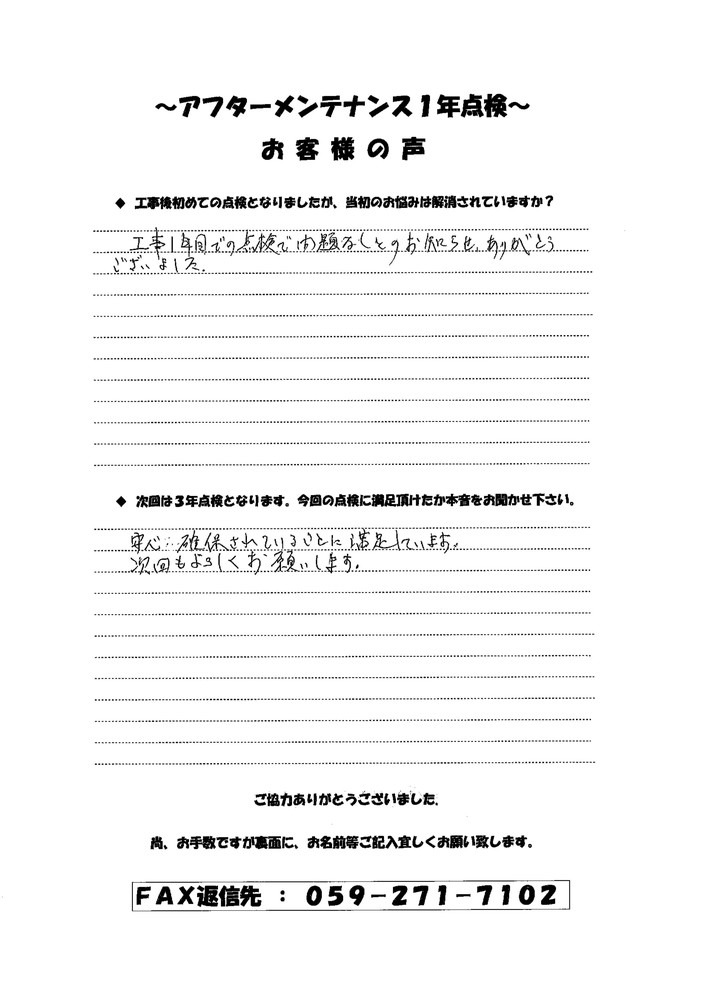 ～アフターメンテナンス１年点検～
お客様の声
◆ 工事後初めての点検となりましたが、当初のお悩みは解消されていますか？
工事1年目での点検で問題なしとのお知らせ、ありがとう
ございました。
◆ 次回は３年点検となります。今回の点検に満足頂けたか本音をお聞かせ下さい。
安心：確保されていることに満足しています。
次回もよろしくお願いします。
ご協力ありがとうございました。
尚、お手数ですが裏面に、お名前等ご記入宜しくお願い致します。
ＦＡＸ返信先 ： ０５９－２７１－７１０２